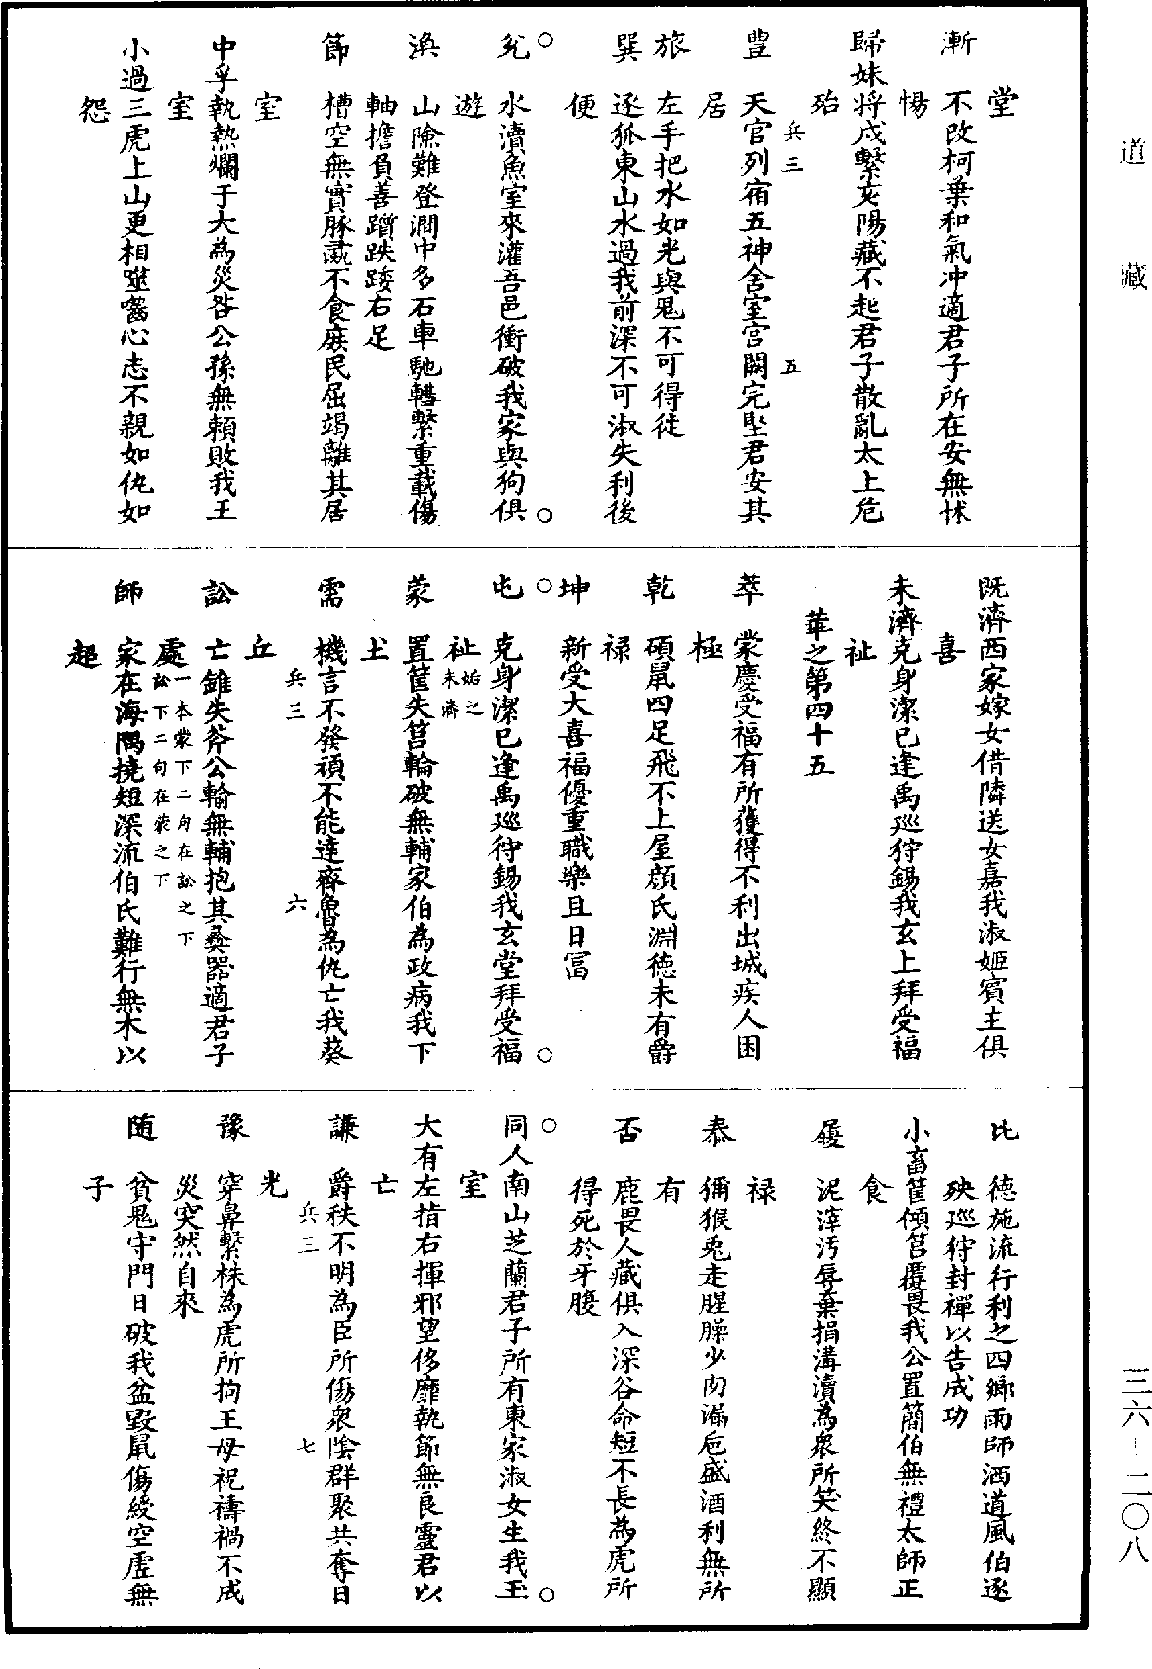 道藏
堂
漸　不改柯葉和氣沖適君子所在安無怵
惕
歸妹將戍繫亥陽藏不起君子散亂太上危
殆
兵三　五
豊　天官列宿五神舍室宮闕完堅君安其
居
旅　左手把水如光與鬼不可得從
巽　逐狐東山水過我前深不可涉失利後
便
兊　水瀆魚室來灌吾邑衝破我家與狗俱
遊
渙　山險難登澗中多石車馳轊繫重載傷
軸擔負善躓跌踒右足
節　槽空無實豚彘不食庶民屈竭離其居
室
中孚執熱爛手大為災咎公孫無頼敗我王
室
小過三虎上山更相噬嚙心志不親如仇如
怨
既濟西家嫁女借隣送女嘉我淑姬賓主俱
喜
未濟克身潔已逢禹巡狩錫我玄上拜受福
祉
萃之第四十五
萃　蒙慶受福有所獲得不利出城疾人困
極
乾　碩鼠四足飛不上屋顏氏淵徳未有爵
禄
坤　新受大喜福優重職樂且日富
屯　克身潔已逢禹巡狩錫我玄堂拜受福
祉姤之未濟
蒙　置筐失筥輪破無輔家伯為政病我下
土
兵三　六
需　機言不發頑不能達齊魯為仇亡我葵
丘
訟　亡錐失斧公輸無輔抱其彝器適君子
處一本蒙下二句在訟之下
訟下二句在蒙之下
師　家在海隅橈短深流伯氏難行無木以
趍
比　徳施流行利之四鄉雨師洒道風伯逐
殃巡狩封禪以告成功
小畜筐傾筥覆畏我公置簡伯無禮太師正
食
履　泥滓汚辱棄捐溝瀆為衆所笑終不顯
禄
泰　獼猴兎走腥臊少肉漏巵盛酒利無所
有
否　鹿畏人藏俱入深谷命短不長為虎所
得死於牙腹
同人南山芝蘭君子所有東家淑女生我玉
室
大有左指右揮邪望侈靡執節無良靈君以
亡
謙　爵秩不明為臣所傷衆陰群聚共奪日
光
兵三　七
豫　穿鼻繫株為虎所拘王母祀禱禍不成
災突然自來
随　貧鬼守門日破我盆毀鼠傷綬空虛無
子
三六－二〇八